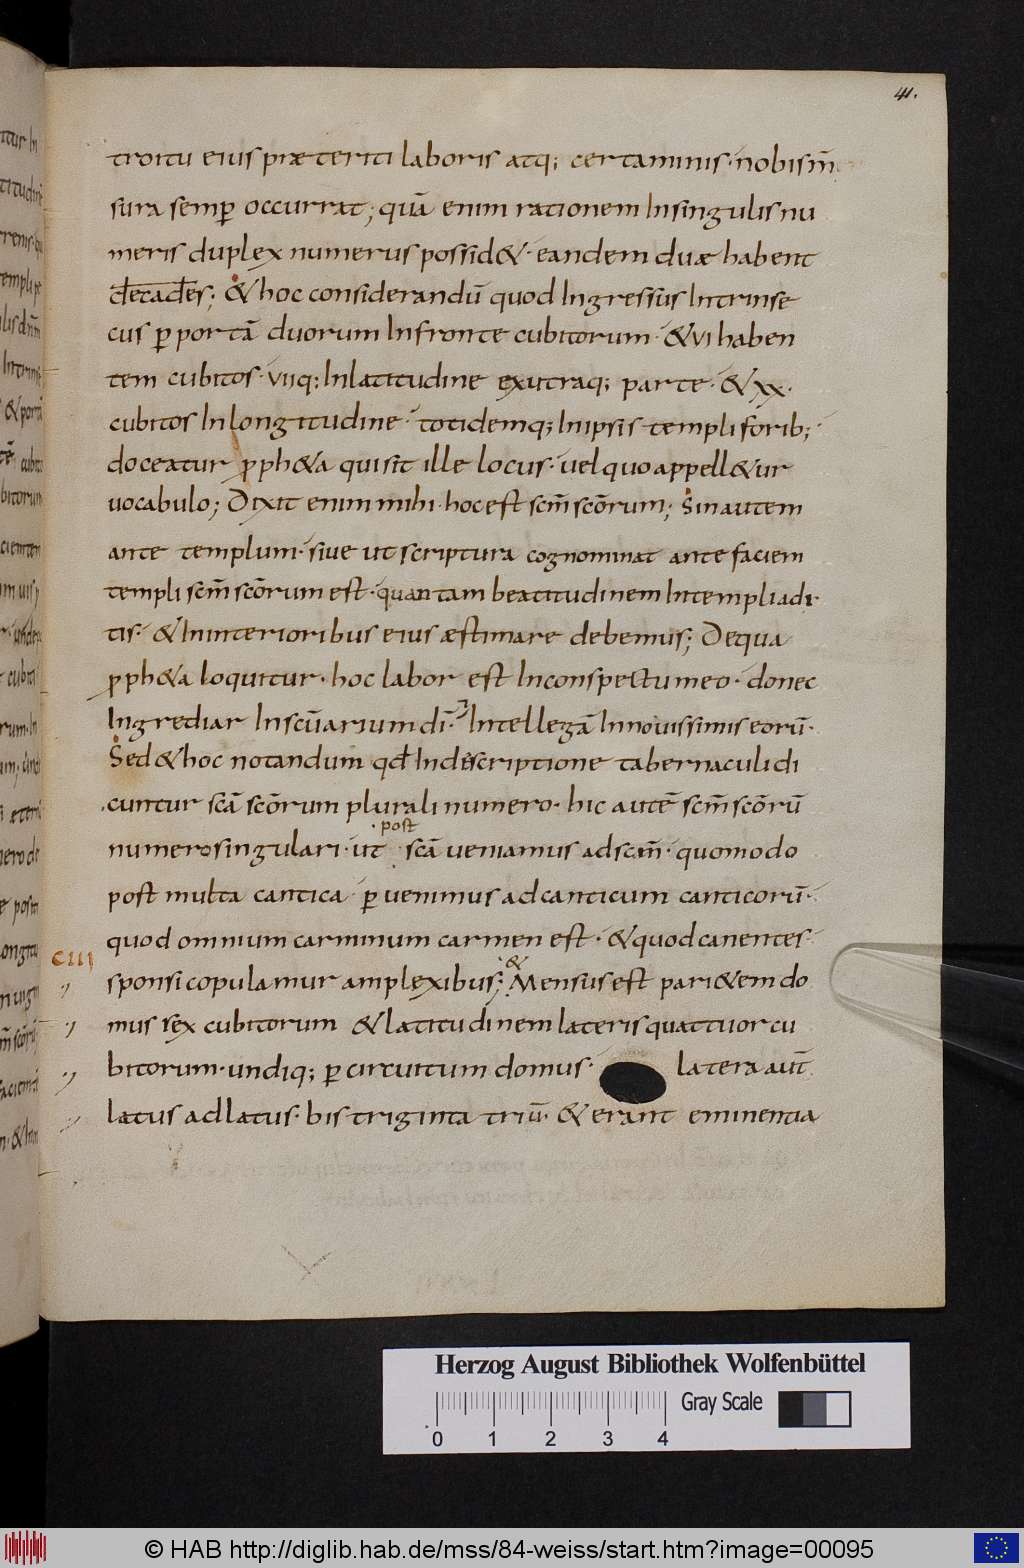 41.
troitu eius præteriti laboris atq; certaminis· nobis m̅
sura semp̱ occurrat; quā enim rationem In singulis nu
meris duplex numerus possid&· eandem duæ habent
decades; & hoc considerandū quod Ingressus Intrinse
cus p̱ portā duorum In fronte cubitorum· & VI haben
tem cubitos· VIIq; In latitudine ex utraq; parte· & XX·
cubitos In longitudine· totidemq; In ipsis templi forib;
doceatur p̱ph&a qui sit ille locus· uel quo appell&ur
uocabulo; Dixit enim mihi· hoc est scm̅ scōrum; Sin autem
ante templum· siue ut scriptura cognominat ante faciem
templi scm̅ scōrum est· quantam beatitudinem In templi adi
tis· & In interioribus eius æstimare debemus; De qua
p̱ph&a loquitur· hoc labor est In conspectu meo· donec
Ingrediar In scūarium dī· & Intellegā In nouissimis eorū·
Sed & hoc notandum qd̅ In descriptione tabernaculi di
cuntur scā scōrum plurali numero· hic autē scm̅ scōrū
numero singulari· ut ·post scā ueniamus ad scm̅· quomodo
post multa cantica p̱uenimus ad canticum canticorū·
quod omnium carminum carmen est· & quod canentes
CIII
sponsi copulamur amplexibus; & Mensus est pari&em do
mus sex cubitorum & latitudinem lateris quattuor cu
bitorum· undiq; p̱ circuitum domus· latera aut̅
latus ad latus· bis triginta triū· & erant eminentia
Herzog August Bibliothek Wolfenbüttel
Gray Scale
0 1 2 3 4
© HAB http://diglib.hab.de/mss/84-weiss/start.htm?image=00095